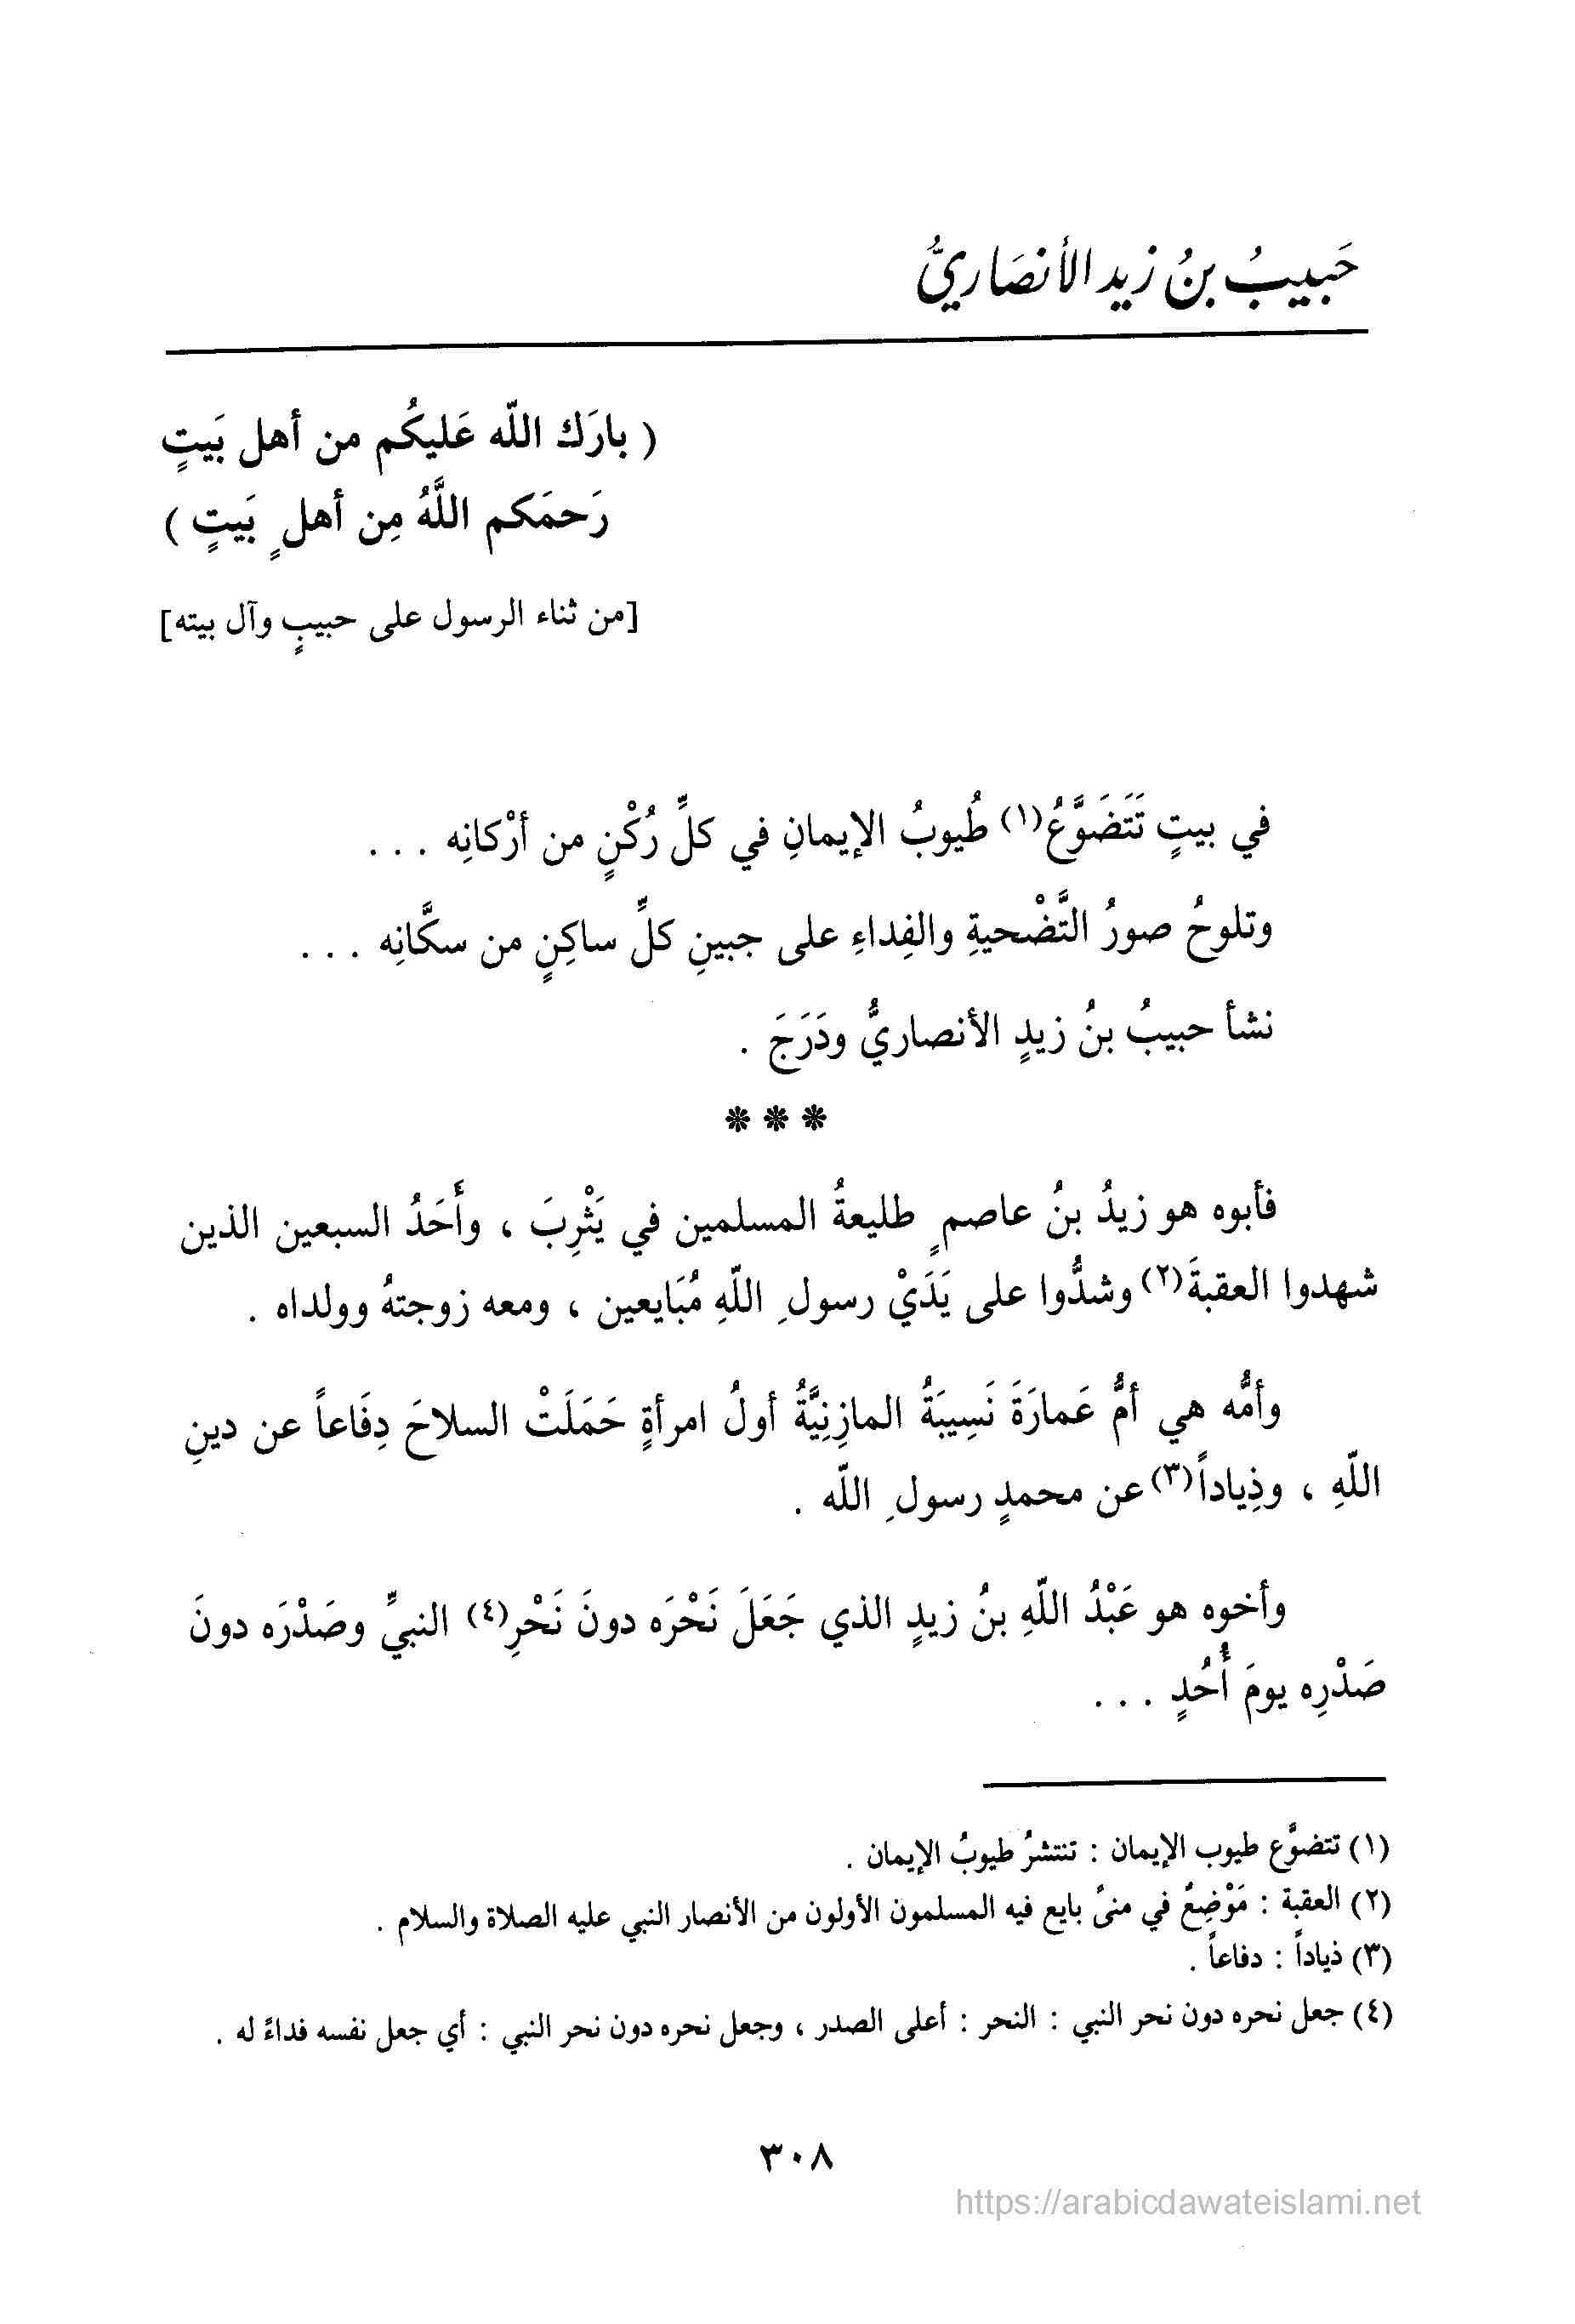 حَبيبُ بنُ زيد الأنصَاريُّ
( بارَك اللّه عَليكُم من أهل بَيتٍ
رَحمَكم اللَّهُ مِن أهلٍ بَيتٍ )
[من ثناء الرسول على حبيبٍ وآل بيته]
في بيتٍ تَتَضَوَّعُ(١) طُيوبُ الإيمانِ في كلِّ رُكْنٍ من أرْكانِه . . .
وتلوحُ صورُ التَّضْحيةِ والفِداءِ على جبينِ كلِّ ساكِنٍ من سكَّانِه . . .
نشأ حبيبُ بنُ زيدٍ الأنصاريُّ ودَرَجَ .
* * *
فأبوه هو زيدُ بنُ عاصمٍ طليعةُ المسلمين في يَثْرِبَ ، وأَحَدُ السبعين الذين
شهدوا العقبةَ(٢) وشدُّوا على يَدَيْ رسولِ اللّهِ مُبَايعين ، ومعه زوجتهُ وولداه .
وأمُّه هي أمُّ عَمارَةَ نَسِيبَةُ المازِنِيَّةُ أولُ امرأةٍ حَمَلَتْ السلاحَ دِفَاعاً عن دينِ
اللّهِ ، وذِياداً(٣) عن محمدٍ رسولِ اللّه .
وأخوه هو عَبْدُ اللّهِ بنُ زيدٍ الذي جَعَلَ نَحْرَه دونَ نَحْرِ(٤) النبيِّ وصَدْرَه دونَ
صَدْرِه يومَ أُحُدٍ . . .
(١) تتضوَّع طيوب الإيمان : تنتشرُ طيوبُ الإيمان .
(٢) العقبة : مَوْضِعٌ في منىً بايع فيه المسلمون الأولون من الأنصار النبي عليه الصلاة والسلام .
(٣) ذياداً : دفاعاً .
(٤) جعل نحره دون نحر النبي : النحر : أعلى الصدر ، وجعل نحره دون نحر النبي : أي جعل نفسه فداءً له .
٣٠٨
https://arabicdawateislami.net